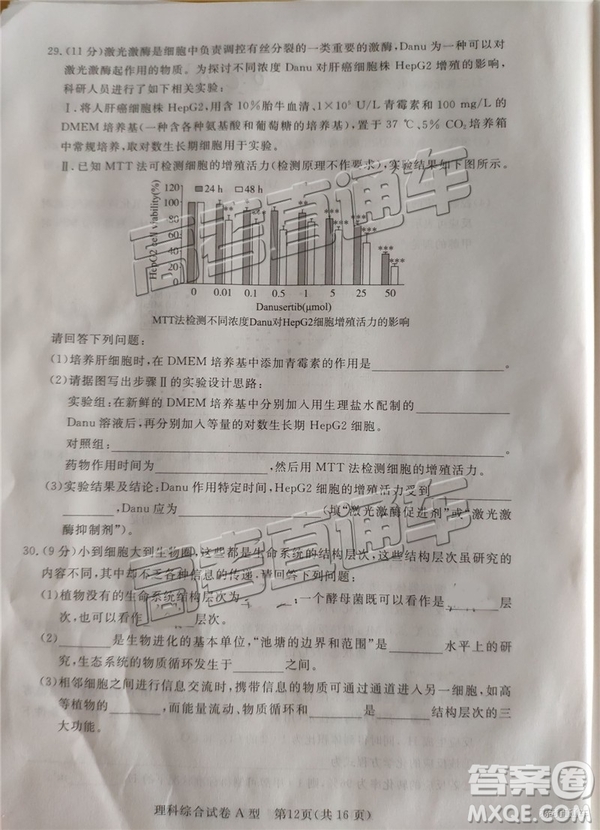 29.(11分)激光激酶是细胞中负责调控有丝分裂的一类重要的激酶,Danu为一种可以对
激光激酶起作用的物质。为探讨不同浓度Danu对肝癌细胞株HepG2增殖的影响,
科研人员进行了如下相关实验:
Ⅰ.将人肝癌细胞株HepG2,用含10%胎牛血清、1×10⁵ U/L青霉素和100 mg/L的
DMEM培养基(一种含各种氨基酸和葡萄糖的培养基),置于37 ℃、5% CO₂培养箱
中常规培养,取对数生长期细胞用于实验。
Ⅱ.已知MTT法可检测细胞的增殖活力(检测原理不作要求),实验结果如下图所示。
HepG2 cells viability(%)
120
100
80
60
40
20
0
24 h 48 h
0 0.01 0.1 0.5 1 5 25 50
Danusertib(μmol)
MTT法检测不同浓度Danu对HepG2细胞增殖活力的影响
请回答下列问题:
(1)培养肝细胞时,在DMEM培养基中添加青霉素的作用是________。
(2)请据图写出步骤Ⅱ的实验设计思路:
实验组:在新鲜的DMEM培养基中分别加入用生理盐水配制的________
Danu溶液后,再分别加入等量的对数生长期HepG2细胞。
对照组:________。
药物作用时间为________,然后用MTT法检测细胞的增殖活力。
(3)实验结果及结论:Danu作用特定时间,HepG2细胞活力受到________
________,Danu应为________(填“激光激酶促进剂”或“激光激
酶抑制剂”)。
30.(9分)小到细胞大到生物圈,这些都是生命系统的结构层次,这些结构层次虽研究的
内容不同,其中却不乏各种信息的传递。请回答下列问题:
(1)植物没有的生命系统结构层次为________;一个酵母菌既可以看作________层
次,也可以看作________层次。
(2)________是生物进化的基本单位,“池塘的边界和范围”是________水平上的研
究,生态系统的物质循环发生于________之间。
(3)相邻细胞之间进行信息交流时,携带信息的物质可通过通道进入另一细胞,如高
等植物的________,而能量流动、物质循环和________是________结构层次的三
大功能。
理科综合试卷A型 第12页(共16页)
高考直通车
高考直通车
高考直通车
答案圈